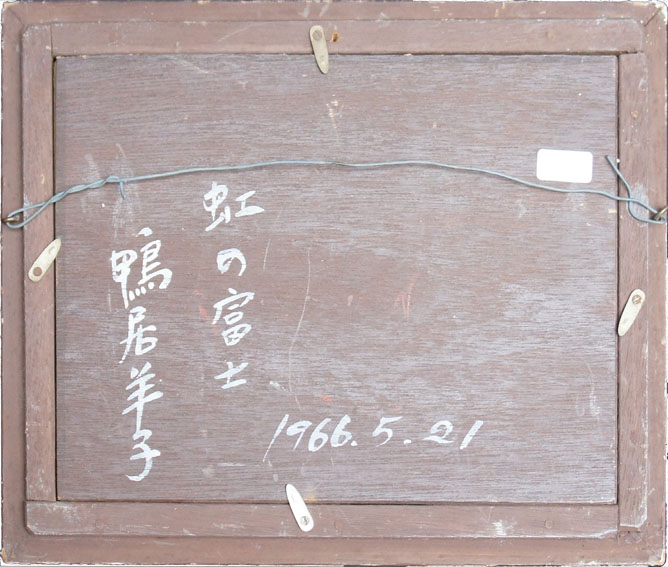 虹の富士
鴨居羊子
1966.5.21